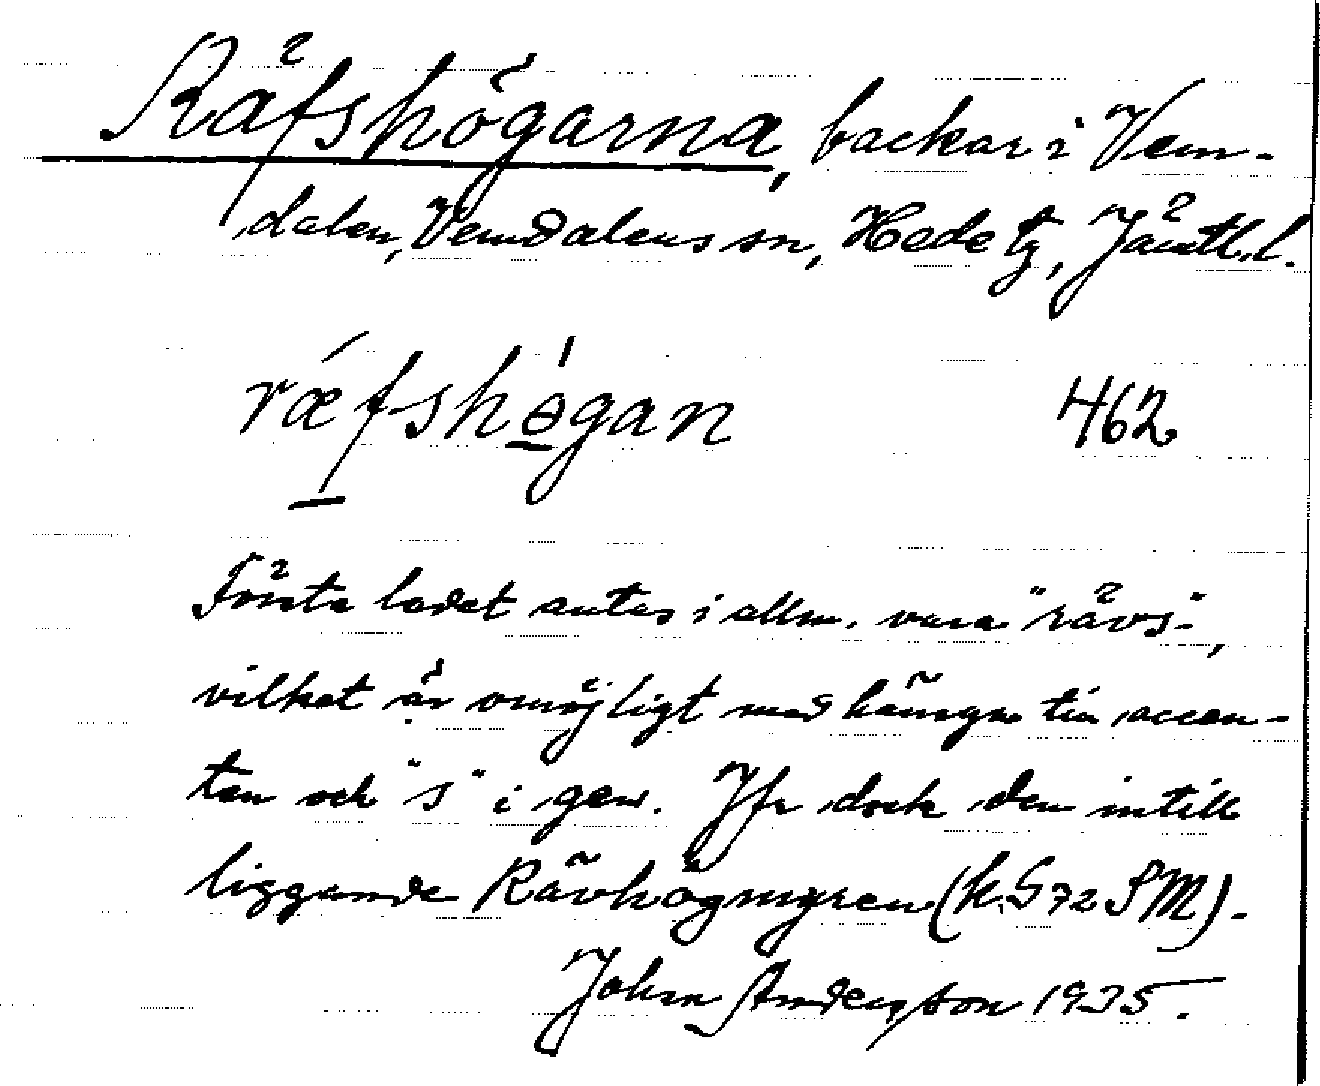 Räfshögarna, backar i Vem-
dalen, Vemdalens sn, Hede tg, Jämtl. l.
ræfshøgan 462
Första ledet antas i allm. vara "rävs-",
vilket är omöjligt med hänsyn till accen-
ten och "s" i gen. Jfr dock den intill
liggande Rävhögmyren (k. G 72 SM).
John Anderson 1935.